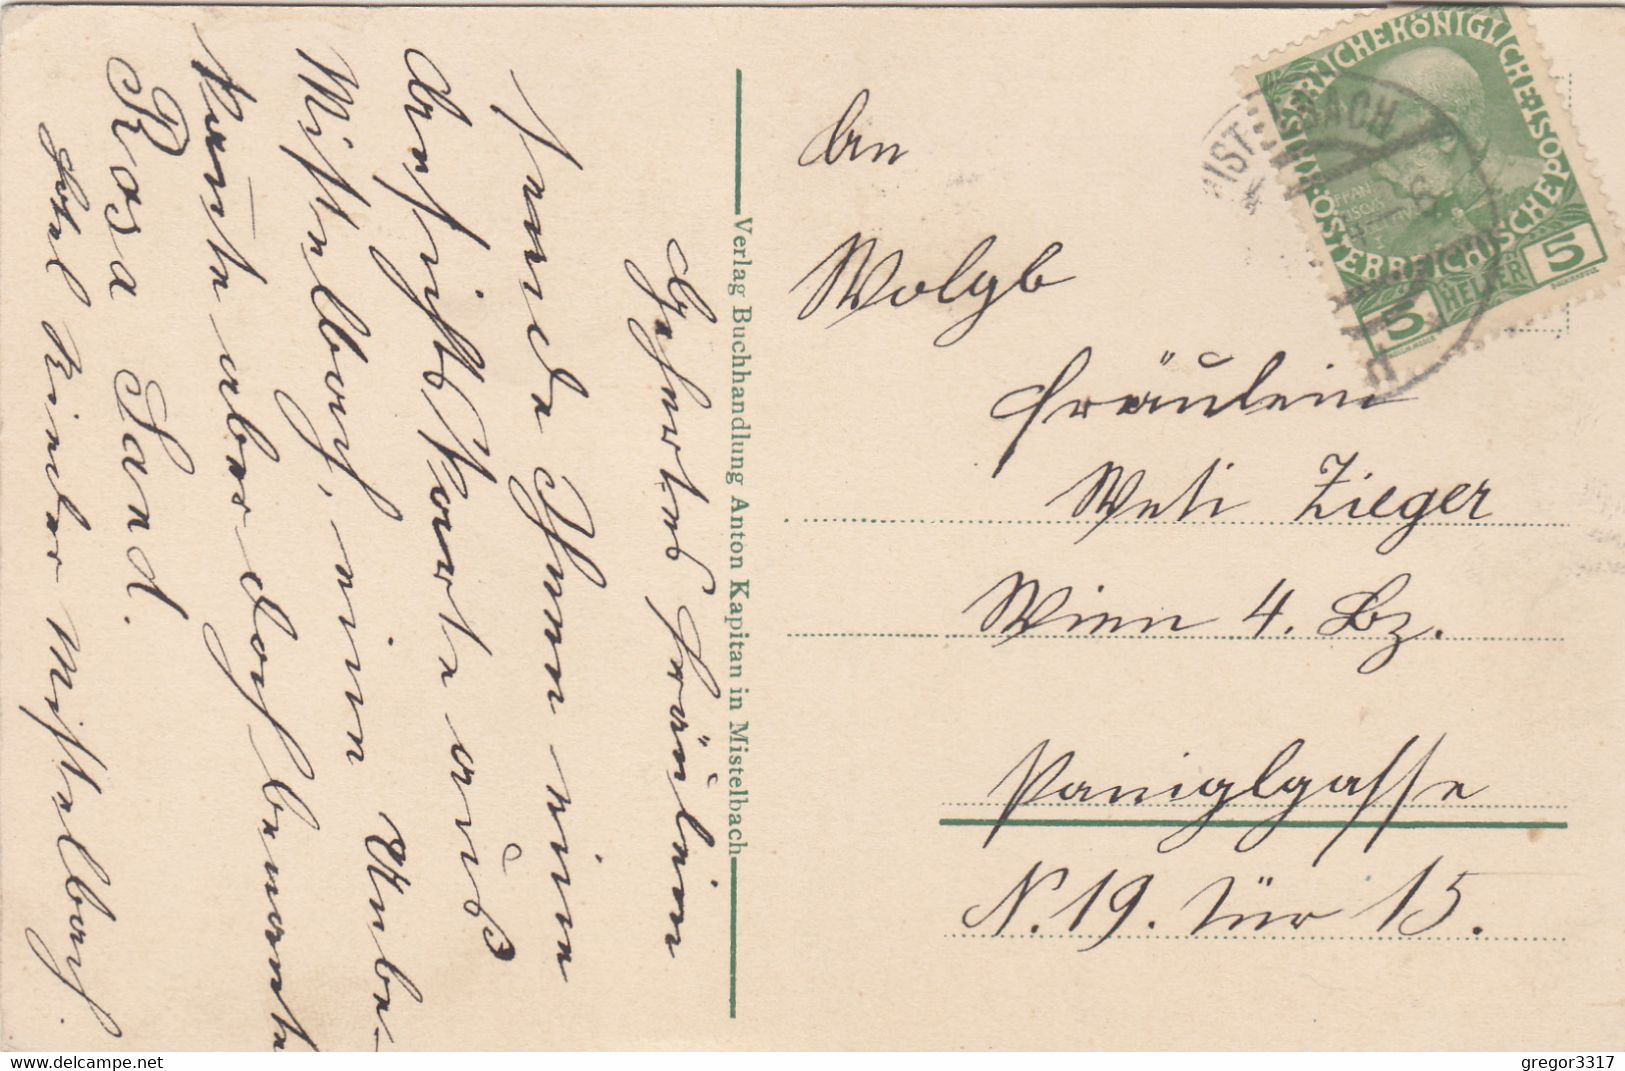 Geehrtes Fräulein
Sende Ihnen eine
Ansichtskarte aus
Mistelbach, eine Unbe-
kante aber doch bemante
Rosa Sand.
Hotel Rieder Mistelbach.
Verlag Buchhandlung Anton Kapitan in Mistelbach
An
Wolgb
Fräulein
Weti Zieger
Wien 4. Bz.
Paniglgasse
N. 19. Tür 15.
KAISERLICHE KÖNIGLICHE ÖSTERREICHISCHE POST
FRANCISCUS
5 HELLER 5
MISTELBACH
gregor3317